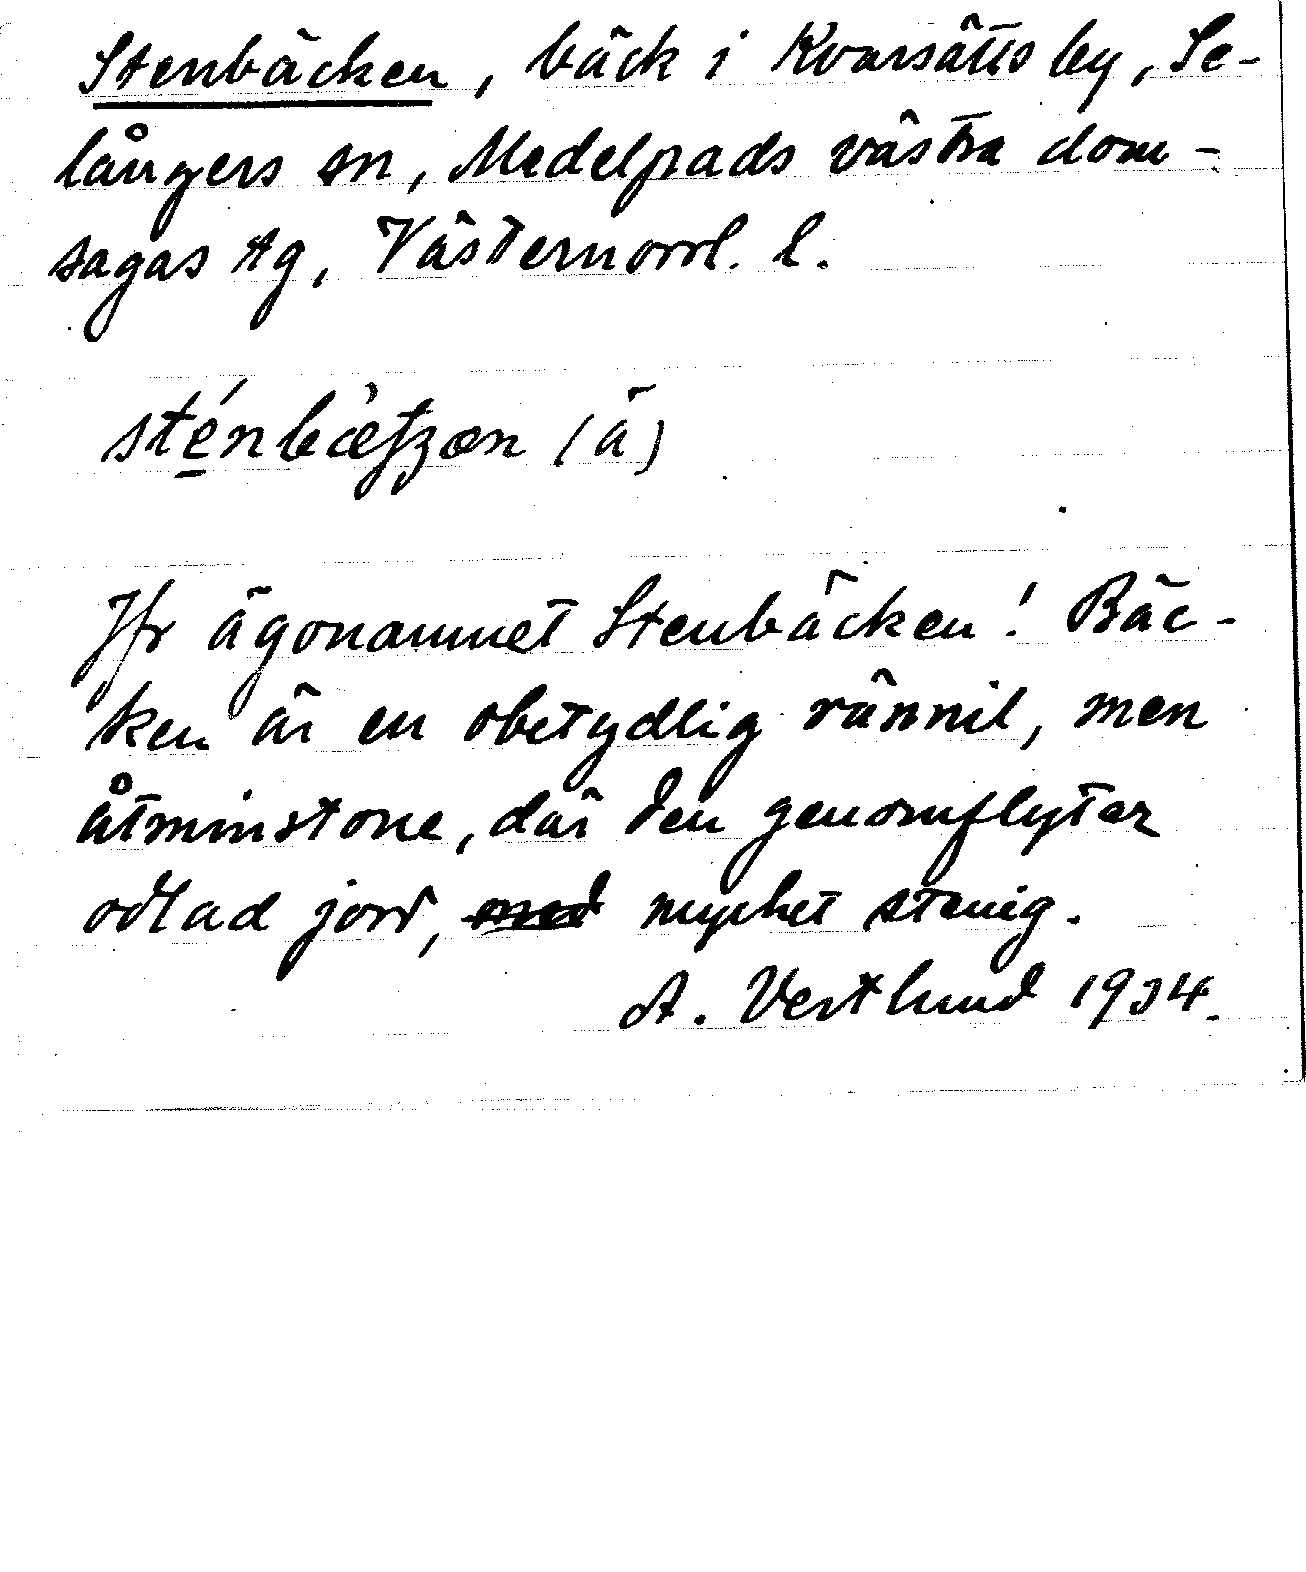 Stenbäcken, bäck i Kvarsätts by, Se-
långers sn, Medelpads västra dom-
sagas tg, Västernorrl. l.
sténbæ̀tʒən (ä)
Jfr ägonamnet Stenbäcken! Bäc-
ken är en obetydlig rännil, men
åtminstone, där den genomflyter
odlad jord, med mycket stenig.
A. Vestlund 1934.